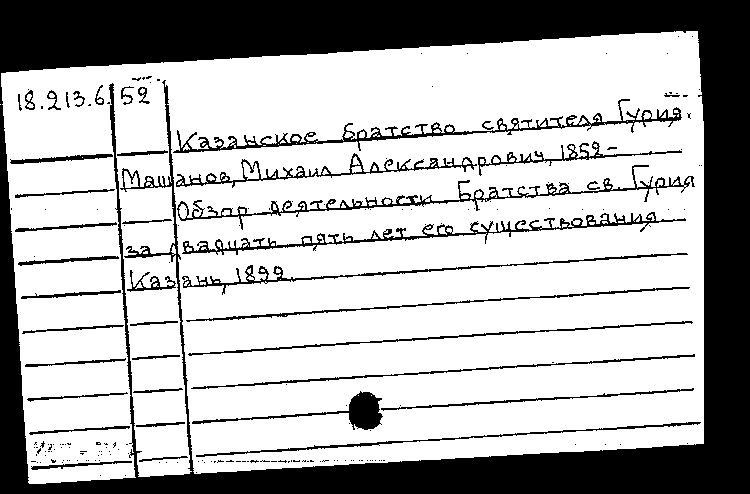 18.213.6. 52
Казанское братство святителя Гурия.
Машанов, Михаил Александрович, 1852-
Обзор деятельности Братства св. Гурия
за двадцать пять лет его существования.
Казань, 1892.